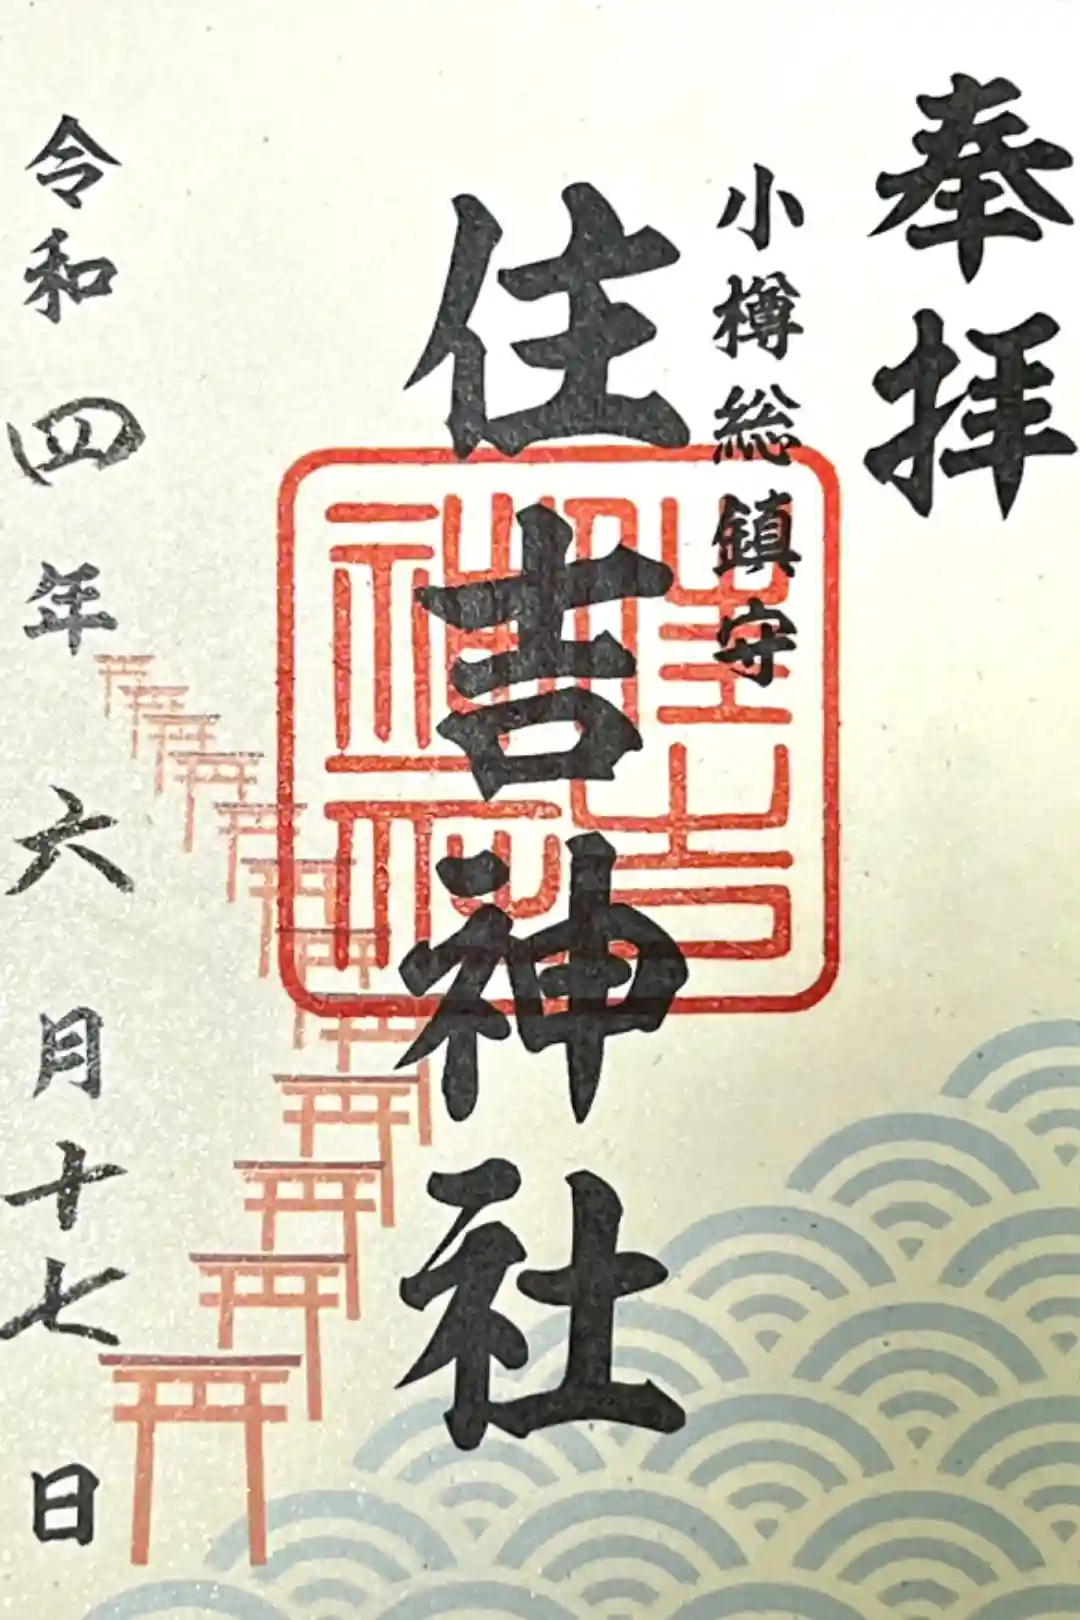 奉拝
小樽総鎮守
住吉神社
住吉
神社
令和四年六月十七日